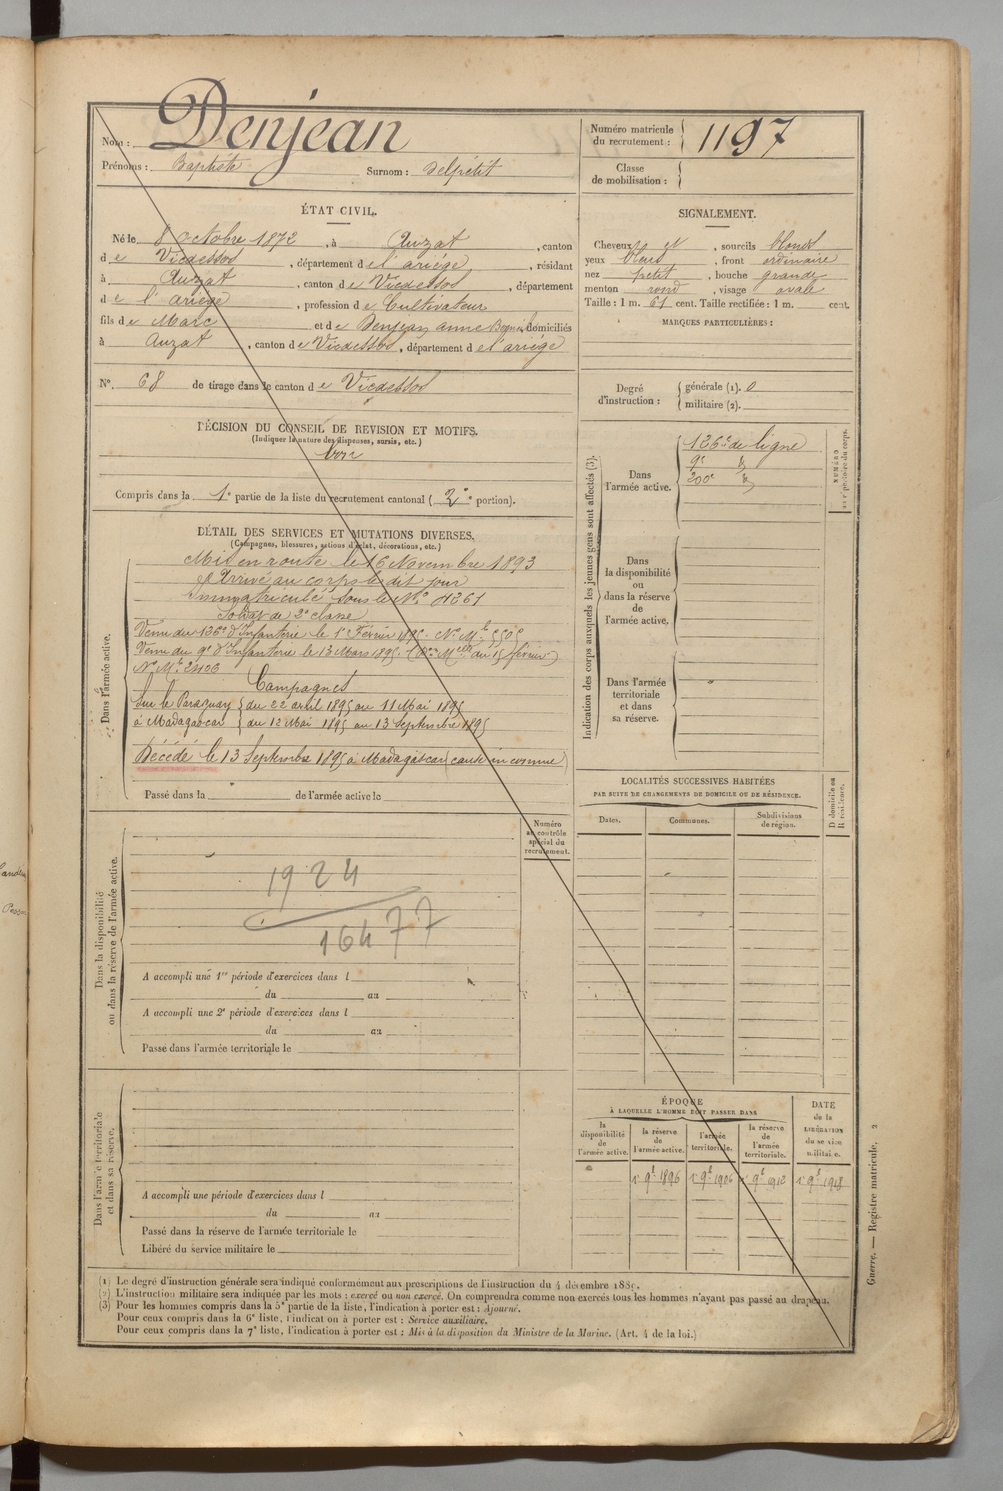 Nom : Denjean
Prénoms : Baptiste Surnom : Delpetit
Numéro matricule du recrutement : 1197
Classe de mobilisation :
ÉTAT CIVIL.
Né le 8 octobre 1872, à Auzat, canton
de Vicdessos, département de l'ariège, résidant
à Auzat, canton de Vicdessos, département
de l'ariège, profession de Cultivateur
fils de Marc et de Denjean anne domiciliés
à Auzat, canton de Vicdessos, département de l'ariège
N°. 68 de tirage dans le canton de Vicdessos
SIGNALEMENT.
Cheveux et, sourcils blonds
yeux bleus, front ordinaire
nez petit, bouche grande
menton rond, visage ovale
Taille : 1 m. 61 cent. Taille rectifiée : 1 m. cent.
MARQUES PARTICULIÈRES :
Degré d'instruction : générale (1). 0
militaire (2).
DÉCISION DU CONSEIL DE REVISION ET MOTIFS.
(Indiquer la nature des dispenses, sursis, etc.)
bon
Compris dans la 1e partie de la liste du recrutement cantonal (2e portion).
DÉTAIL DES SERVICES ET MUTATIONS DIVERSES.
(Campagnes, blessures, actions d'éclat, décorations, etc.)
Dans l'armée active.
Mis en route le 16 Novembre 1893
Arrivé au corps le dit jour
Immatriculé sous le N° 4261
Soldat de 2e classe
Venu du 126e d'Infanterie le 1er Février 1895. N° Mle
Venu du 9e d'Infanterie le 13 Mars 1895. (Don Mlle du 15 février)
N° Mle 2406
Campagnes
Sur le Paraguay du 22 avril 1895 au 11 Mai 1895
à Madagascar du 12 Mai 1895 au 13 Septembre 1895
Décédé le 13 Septembre 1895 à Madagascar (cause inconnue)
Passé dans la de l'armée active le
Indication des corps auxquels les jeunes gens sont affectés (3).
NUMÉRO au répertoire du corps.
Dans l'armée active.
126e de ligne
9e d
200e d
Dans la disponibilité ou dans la réserve de l'armée active.
Dans l'armée territoriale et dans sa réserve.
LOCALITÉS SUCCESSIVES HABITÉES
PAR SUITE DE CHANGEMENTS DE DOMICILE OU DE RÉSIDENCE.
Dates. Communes. Subdivisions de région. D domicile ou R résidence.
Dans la disponibilité ou dans la réserve de l'armée active.
Numéro au contrôle spécial du recrutement.
1924
16477
A accompli une 1re période d'exercices dans l
du au
A accompli une 2e période d'exercices dans l
du au
Passé dans l'armée territoriale le
Dans l'armée territoriale et dans sa réserve.
A accompli une période d'exercices dans l
du au
Passé dans la réserve de l'armée territoriale le
Libéré du service militaire le
ÉPOQUE
À LAQUELLE L'HOMME DOIT PASSER DANS
la disponibilité de l'armée active.
la réserve de l'armée active.
l'armée territoriale.
la réserve de l'armée territoriale.
DATE de la LIBÉRATION du service militaire.
1er 9bre 1896
1er 9bre 1906
1er 9bre 1912
1er 9bre 1918
(1) Le degré d'instruction générale sera indiqué conformément aux prescriptions de l'instruction du 4 décembre 1889.
(2) L'instruction militaire sera indiquée par les mots : exercé ou non exercé. On comprendra comme non exercés tous les hommes n'ayant pas passé au drapeau.
(3) Pour les hommes compris dans la 5e partie de la liste, l'indication à porter est : Ajourné.
Pour ceux compris dans la 6e liste, l'indication à porter est : Service auxiliaire.
Pour ceux compris dans la 7e liste, l'indication à porter est : Mis à la disposition du Ministre de la Marine. (Art. 4 de la loi.)
Guerre. — Registre matricule. 2